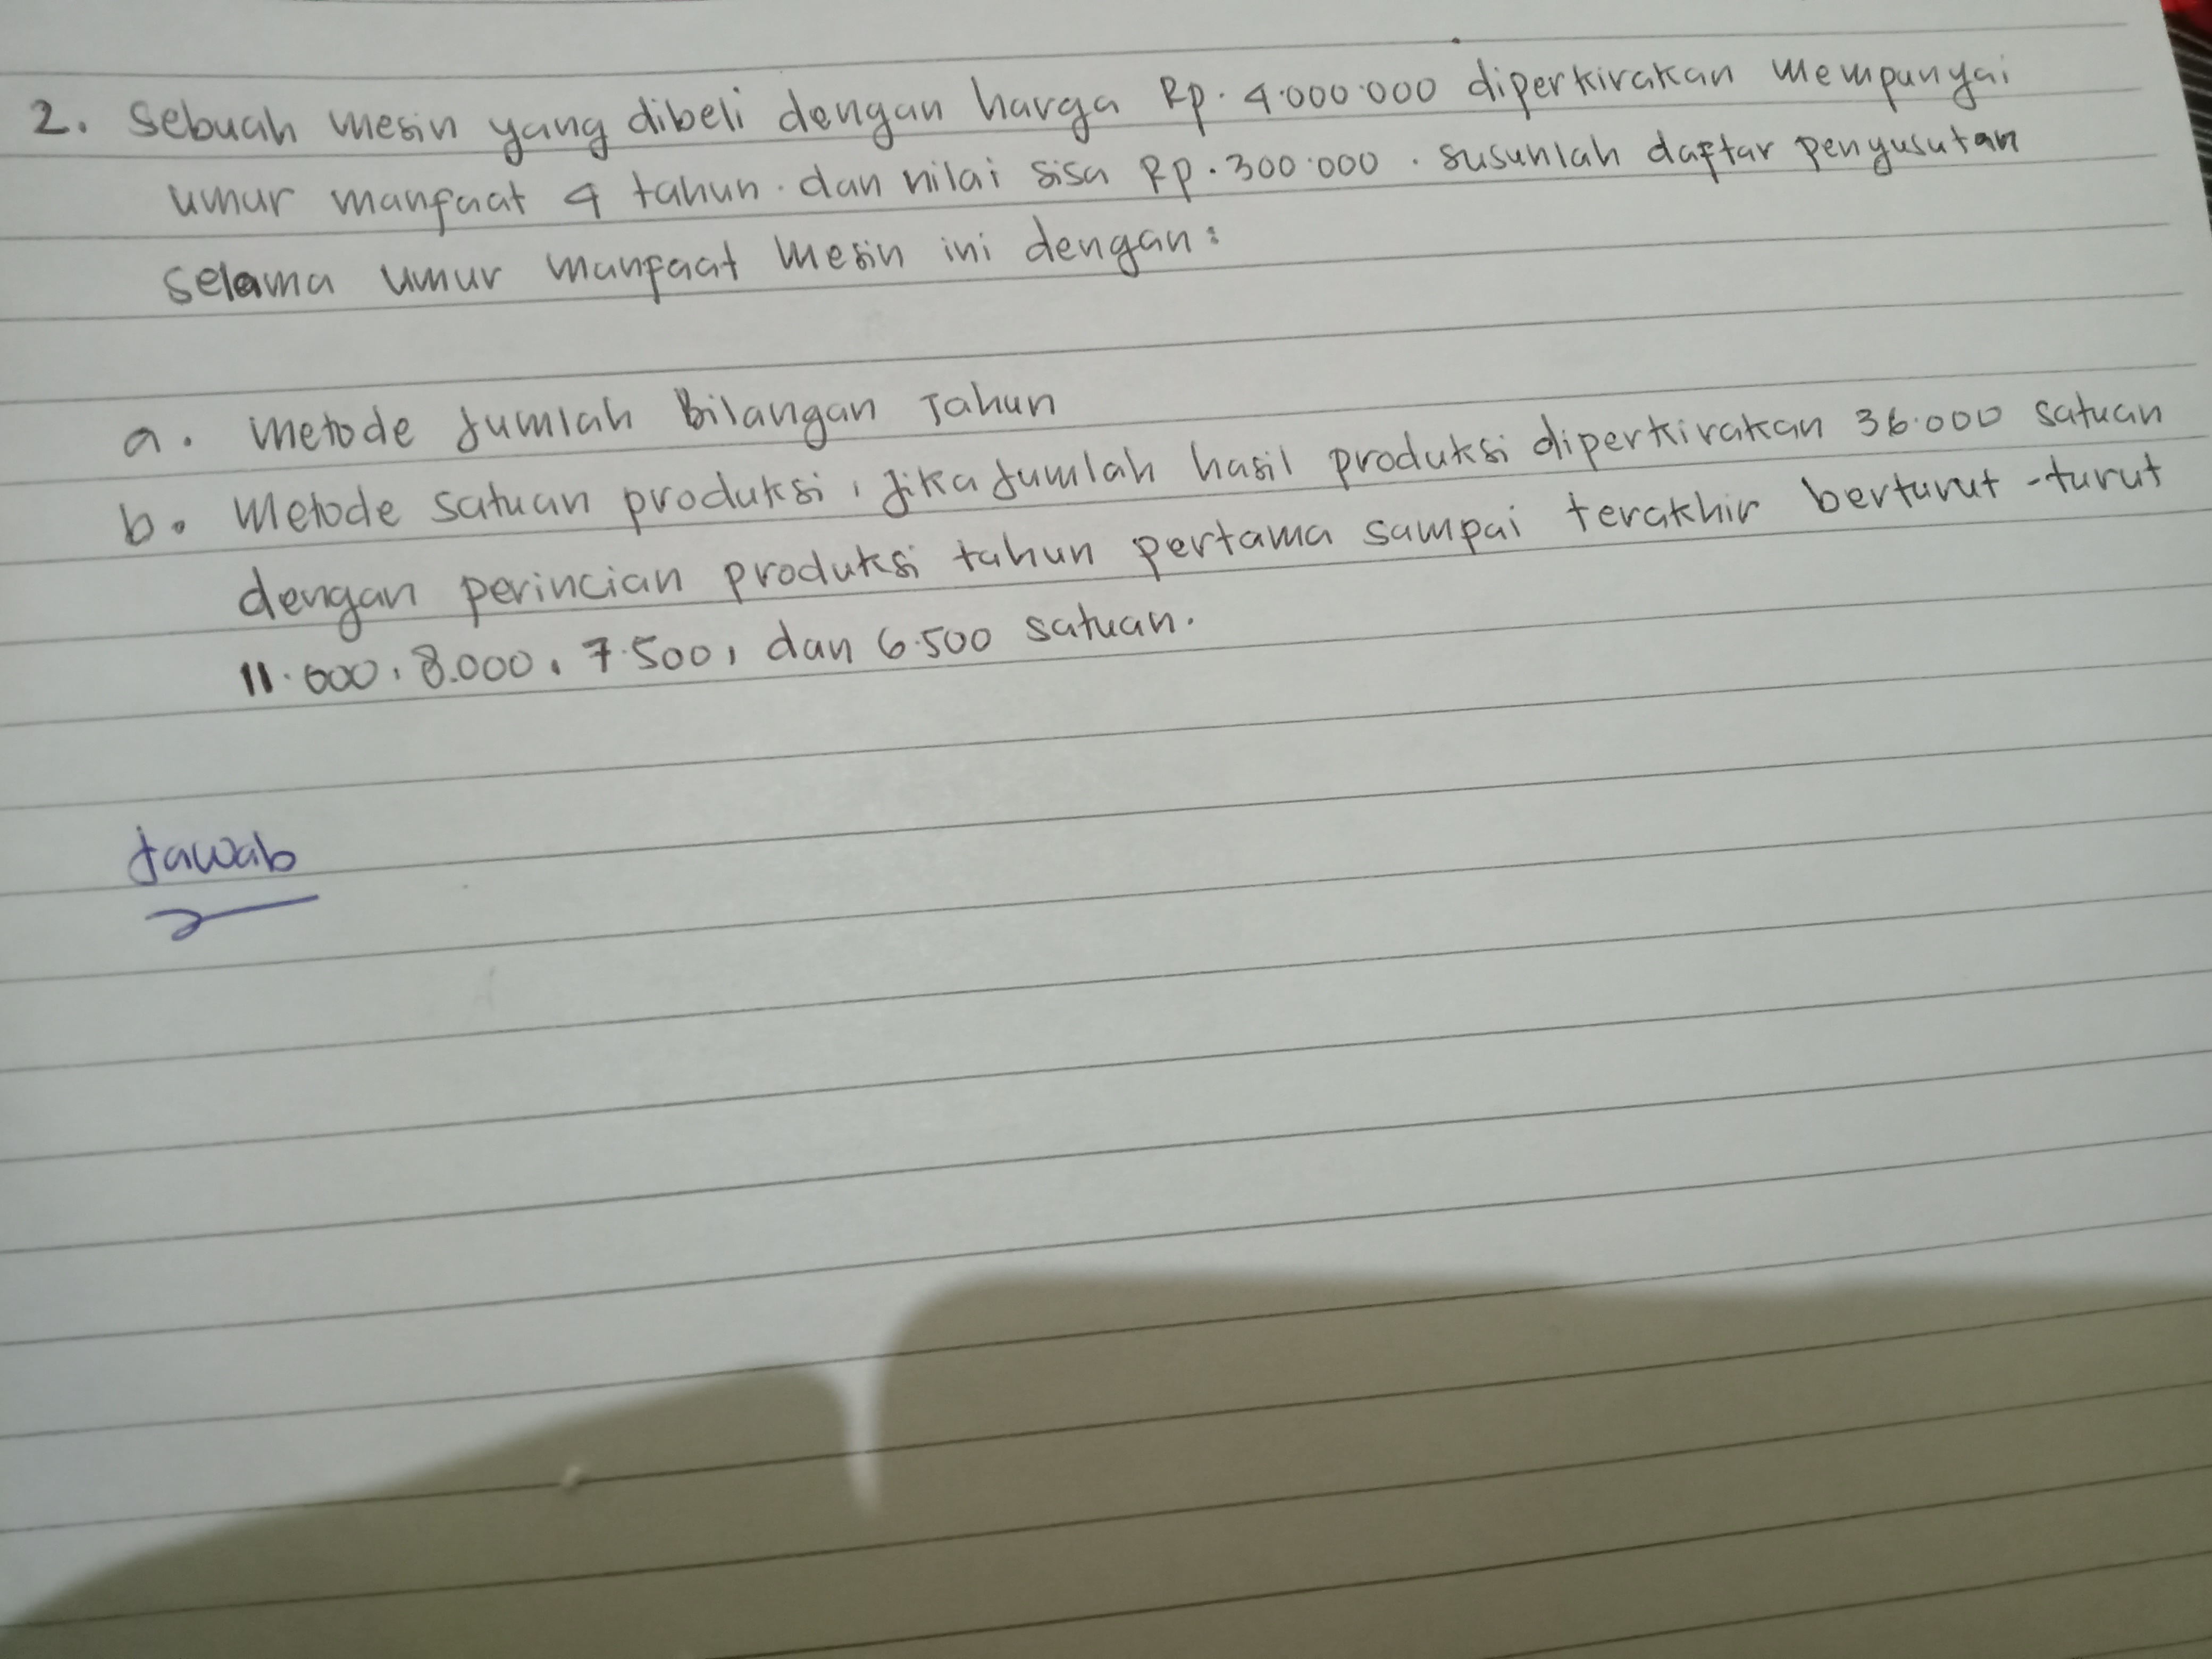 2. Sebuah mesin yang dibeli dengan harga Rp. 4.000.000 diperkirakan mempunyai
umur manfaat 4 tahun. dan nilai sisa Rp. 300.000. susunlah daftar penyusutan
selama umur manfaat mesin ini dengan:
a. metode Jumlah Bilangan Tahun
b. Metode satuan produksi, Jika Jumlah hasil produksi diperkirakan 36.000 satuan
dengan perincian produksi tahun pertama sampai terakhir berturut-turut
11.000, 8.000, 7.500, dan 6.500 satuan.
Jawab